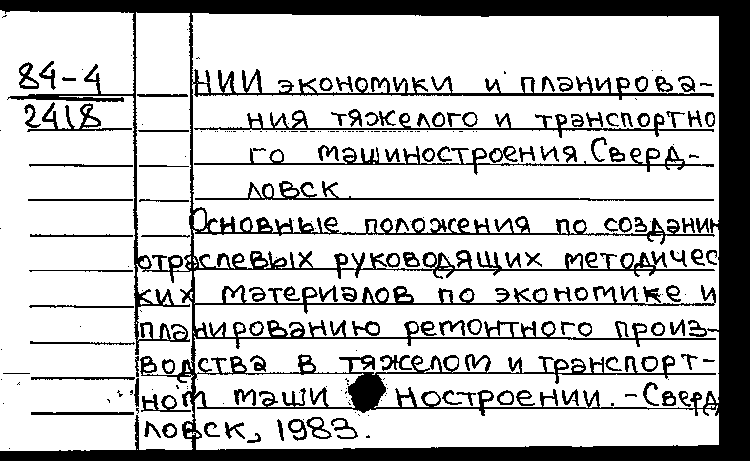 84-4
2418
НИИ экономики и планирова-
ния тяжелого и транспортно
го машиностроения. Сверд-
ловск.
Основные положения по создани
отраслевых руководящих методичес
ких материалов по экономике и
планированию ремонтного произ-
водства в тяжелом и транспорт-
ном маши ностроении. - Сверд
ловск, 1983.